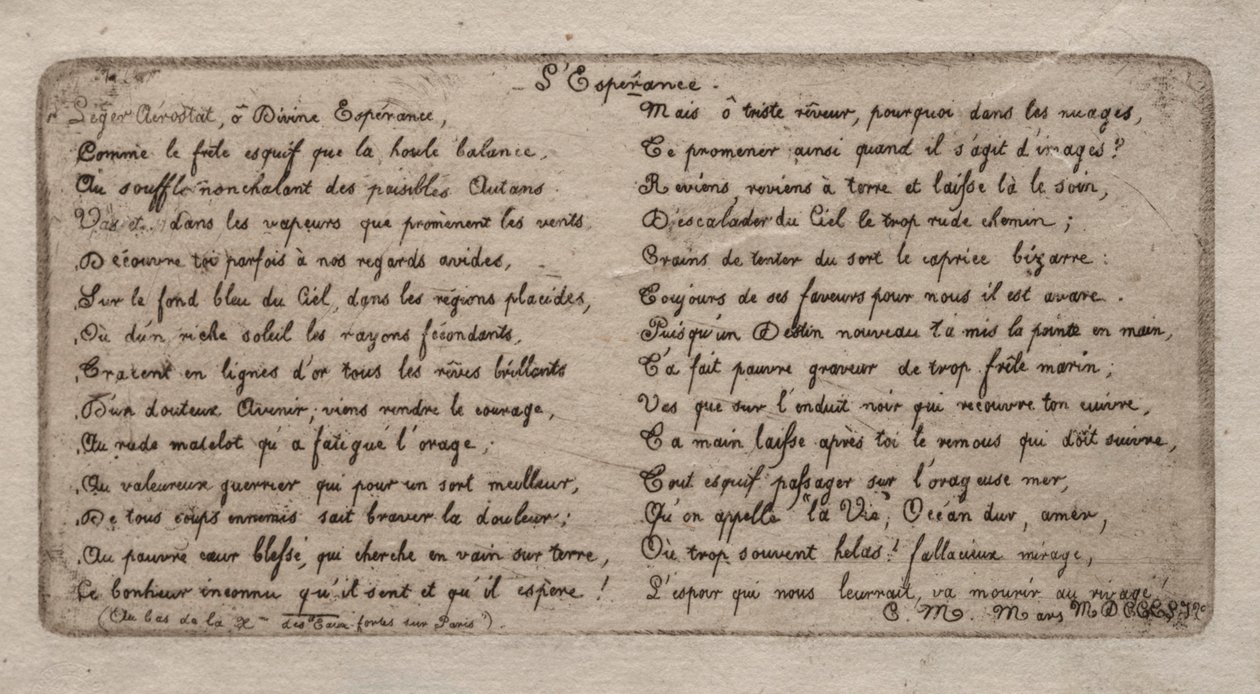 L'Espérance.
Léger Aérostat, ô Divine Espérance,
Comme le frêle esquif que la houle balance,
Au souffle nonchalant des paisibles Autans
Vas et.. dans les vapeurs que promènent les vents
Découvre toi parfois à nos regards avides,
Sur le fond bleu du Ciel, dans les régions placides,
Où d'un riche soleil les rayons fécondants,
Tracent en lignes d'or tous les rêves brillants
D'un douteux Avenir; viens rendre le courage,
Au rude matelot qu'a fatigué l'orage;
Au valeureux guerrier qui pour un sort meilleur,
De tous coups ennemis sait braver la douleur;
Au pauvre cœur blessé, qui cherche en vain sur terre,
Le bonheur inconnu qu'il sent et qu'il espère!
(Au bas de la des "Eaux fortes sur Paris").
Mais ô triste rêveur, pourquoi dans les nuages,
Te promener ainsi quand il s'agit d'images?
Reviens, reviens à terre et laisse là le soin,
D'escalader du Ciel le trop rude chemin;
Crains de tenter du sort le caprice bizarre:
Toujours de ses faveurs pour nous il est avare.
Puisqu'un Destin nouveau t'a mis la pointe en main,
T'a fait pauvre graveur de trop frêle marin;
Vas que sur l'enduit noir qui recouvre ton cuivre,
Ta main laisse après toi le remous qui doit suivre,
Tout esquif passager sur l'orageuse mer,
Qu'on appelle "la Vie", Océan dur, amer,
Où trop souvent hélas! fallacieux mirage,
L'espoir qui nous leurrait, va mourir au rivage!
C. M. Mars